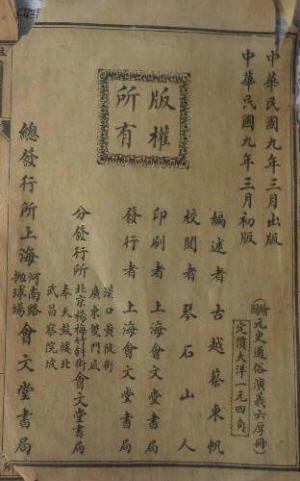 中華民國九年三月出版
中華民國九年三月初版
繪圖元史通俗演義六厚冊
定價大洋一元四角
編述者古越蔡東帆
校閱者琴石山人
印刷者上海會文堂書局
發行者上海會文堂書局
版權
所有
分發行所
漢口黃陂街
廣東雙門底
北京楊梅竹斜街
奉天鼓樓北
武昌察院坡
會文堂書局
總發行所上海
河南路
拋球場
會文堂書局